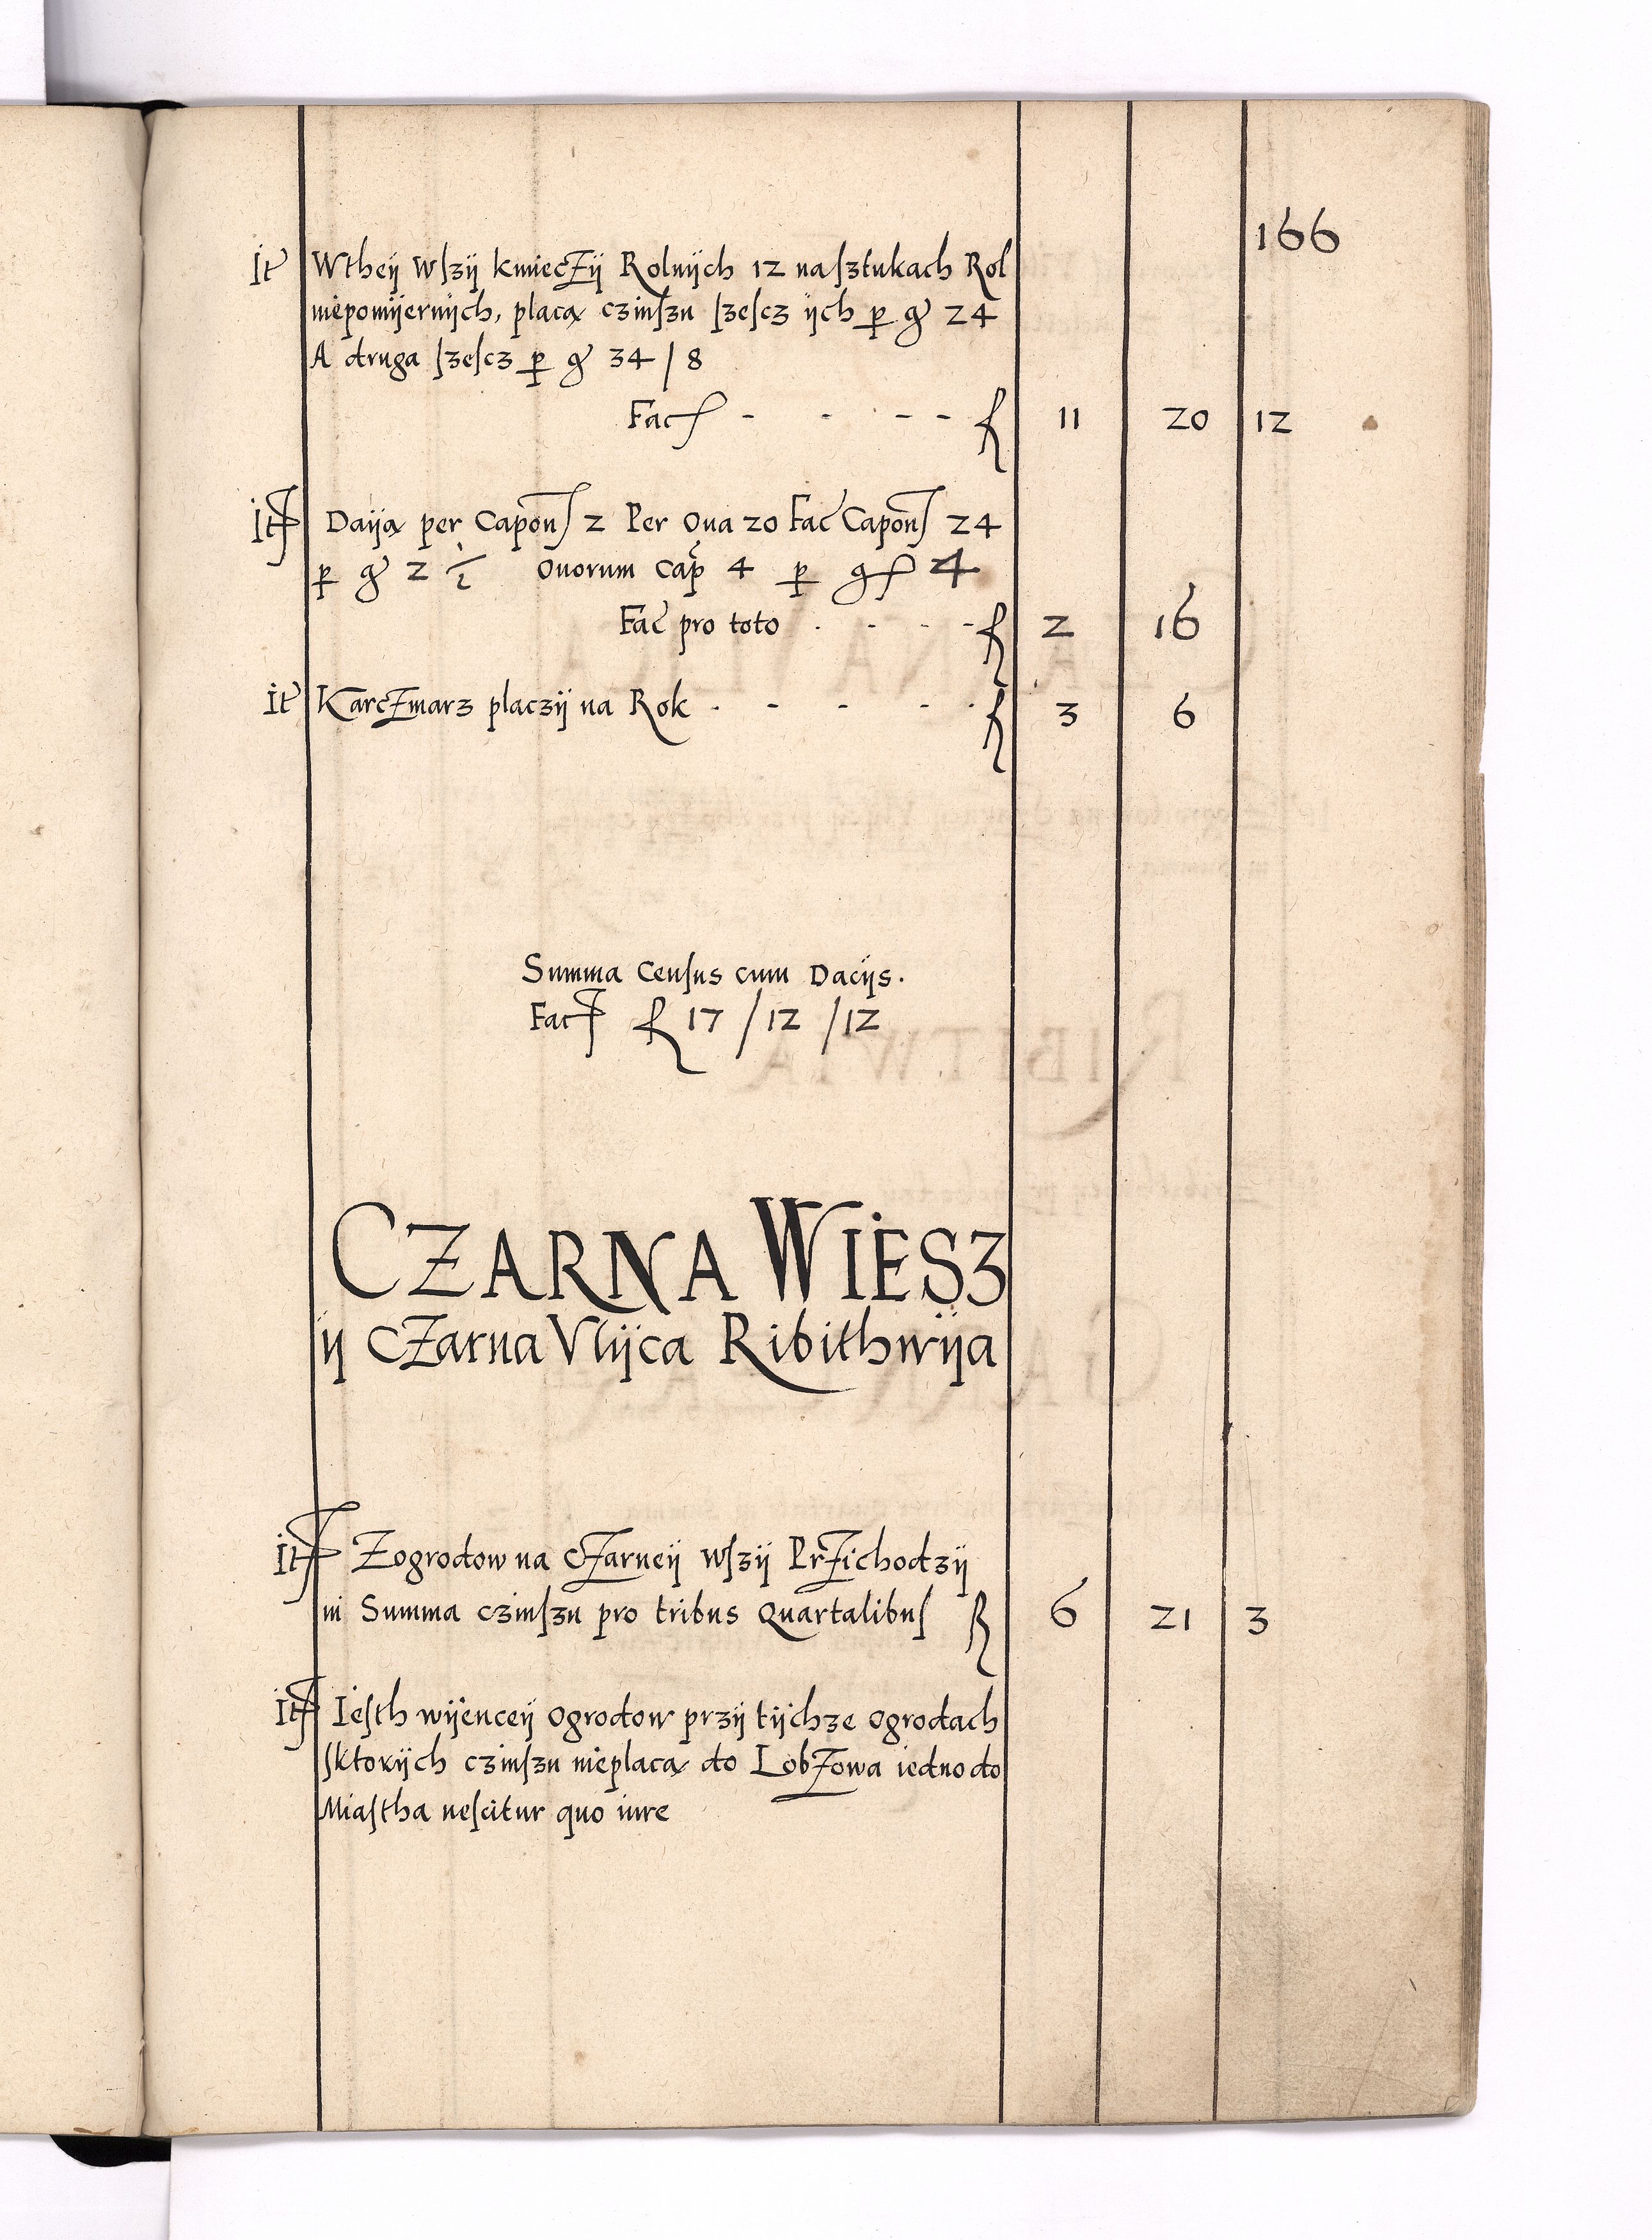 166
It Wtheÿ wſzÿ kmieczÿ Rolnÿch 12 na ſztukach Rol
niepomÿernÿch, placą czinſzu ſzeſcz ÿch p gr 24
A druga ſzeſcz p gr 34 / 8
Fac - - - - f 11 20 12
It Daÿą per Capon 2 Per Ova 20 Fac Capon 24
p gr 2 1/2 Ovorum Cap 4 p gr 4
Fac pro toto . - - - f 2 16
It Karczmarz placzÿ na Rok . - - - . f 3 6
Summa Cenſus cum Dacÿs.
Fac f 17 / 12 / 12
CZARNA WIESZ
ÿ Czarna Vlÿca Ribithwÿa
It Zogrodow na Czarneÿ wſzÿ Przichodzÿ
in Summa czinſzu pro tribus Quartalibuſ f 6 21 3
It Ieſth wÿenceÿ ogrodow przÿ tÿchze ogrodach
ſktorÿch czinſzu nieplacą do Lobzowa iedno do
Miaſtha neſcitur quo iure